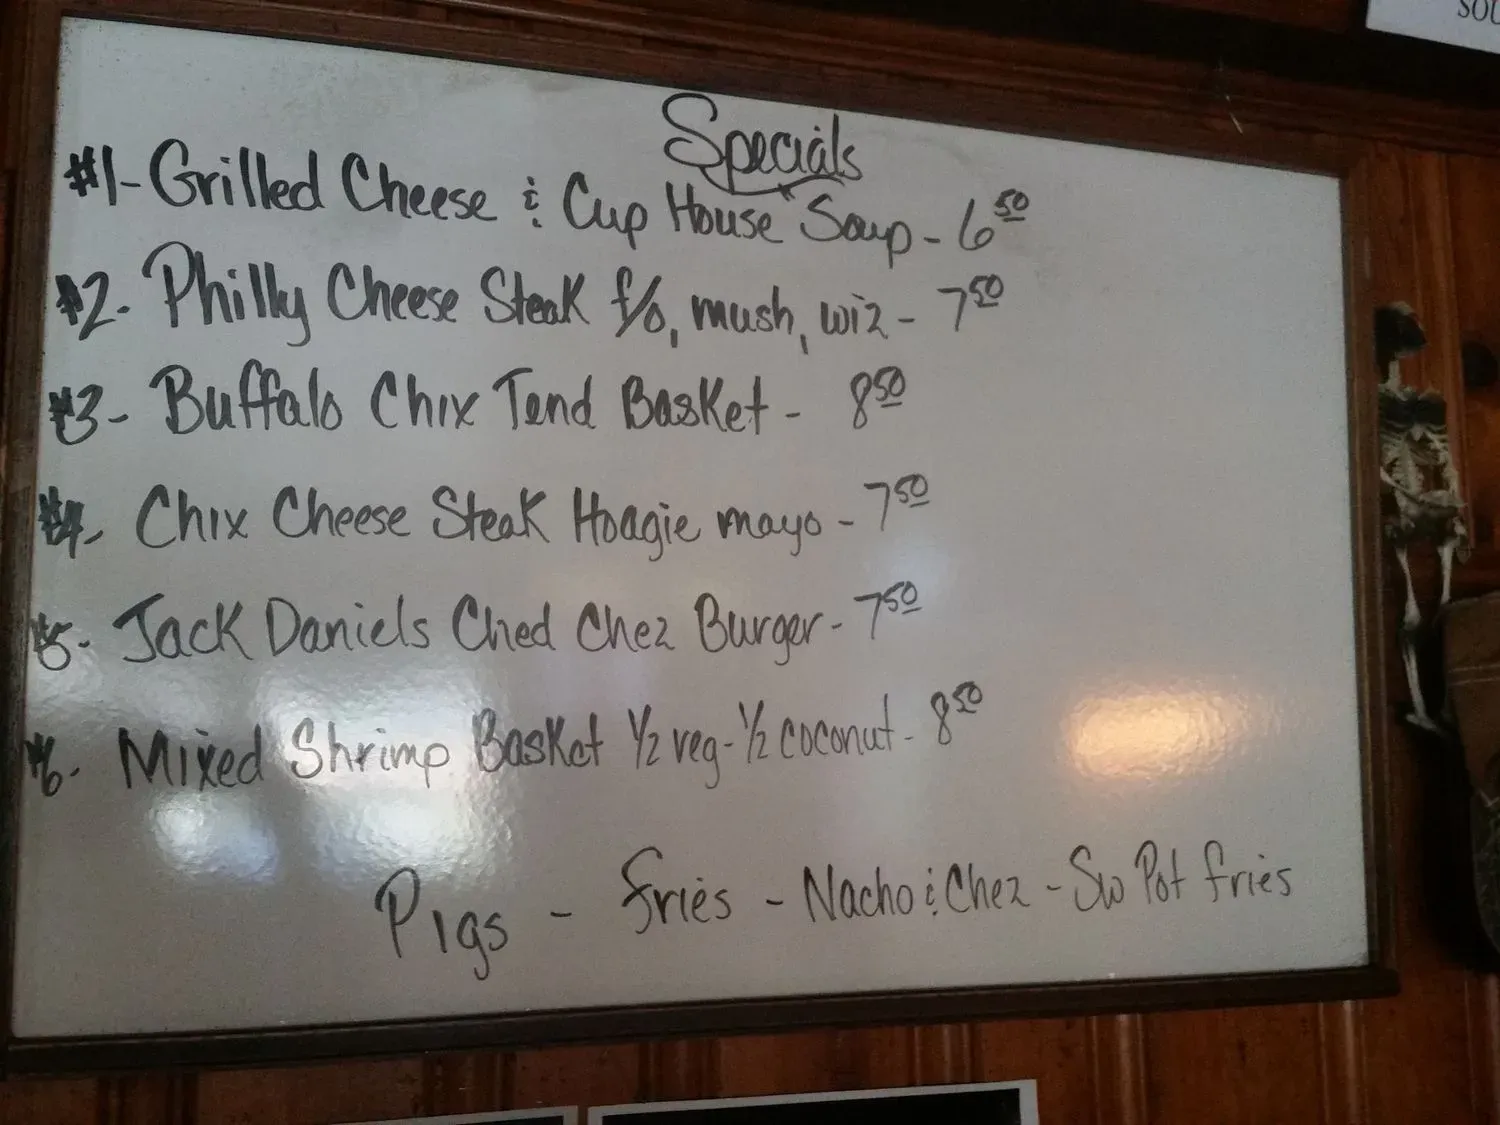 SOU
Specials
#1- Grilled Cheese & Cup House Soup - 6 50
#2- Philly Cheese Steak f/o, mush, wiz - 7 50
#3- Buffalo Chix Tend Basket - 8 50
#4- Chix Cheese Steak Hoagie mayo - 7 50
#5- Jack Daniels Ched Chez Burger - 7 50
#6- Mixed Shrimp Basket 1/2 reg - 1/2 coconut - 8 50
Pigs - Fries - Nacho & Chez - Sw Pot fries